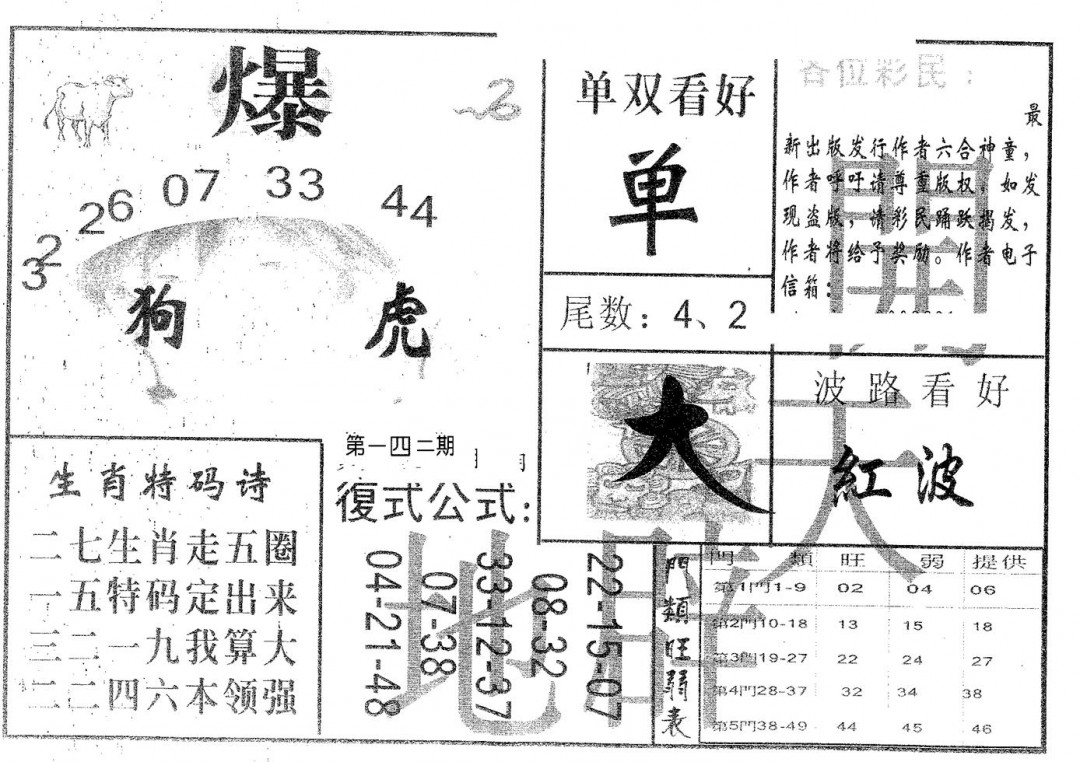 爆
26 07 33 44
狗 虎
单双看好
单
尾数：4、2
各位彩民：
最
新出版发行作者六合神童，
作者呼吁请尊重版权，如发
现盗版，请彩民踊跃揭发，
作者将给予奖励。作者电子
信箱：
大
波路看好
紅波
生肖特码诗
二七生肖走五圈
一五特码定出来
三二一九我算大
二二四六本领强
第一四二期
復式公式：
22-15-07
08-32
33-12-37
07-38
04-21-48
門類旺弱表
門 類 旺 弱 提供
第1門1-9 02 04 06
第2門10-18 13 15 18
第3門19-27 22 24 27
第4門28-37 32 34 38
第5門38-49 44 45 46